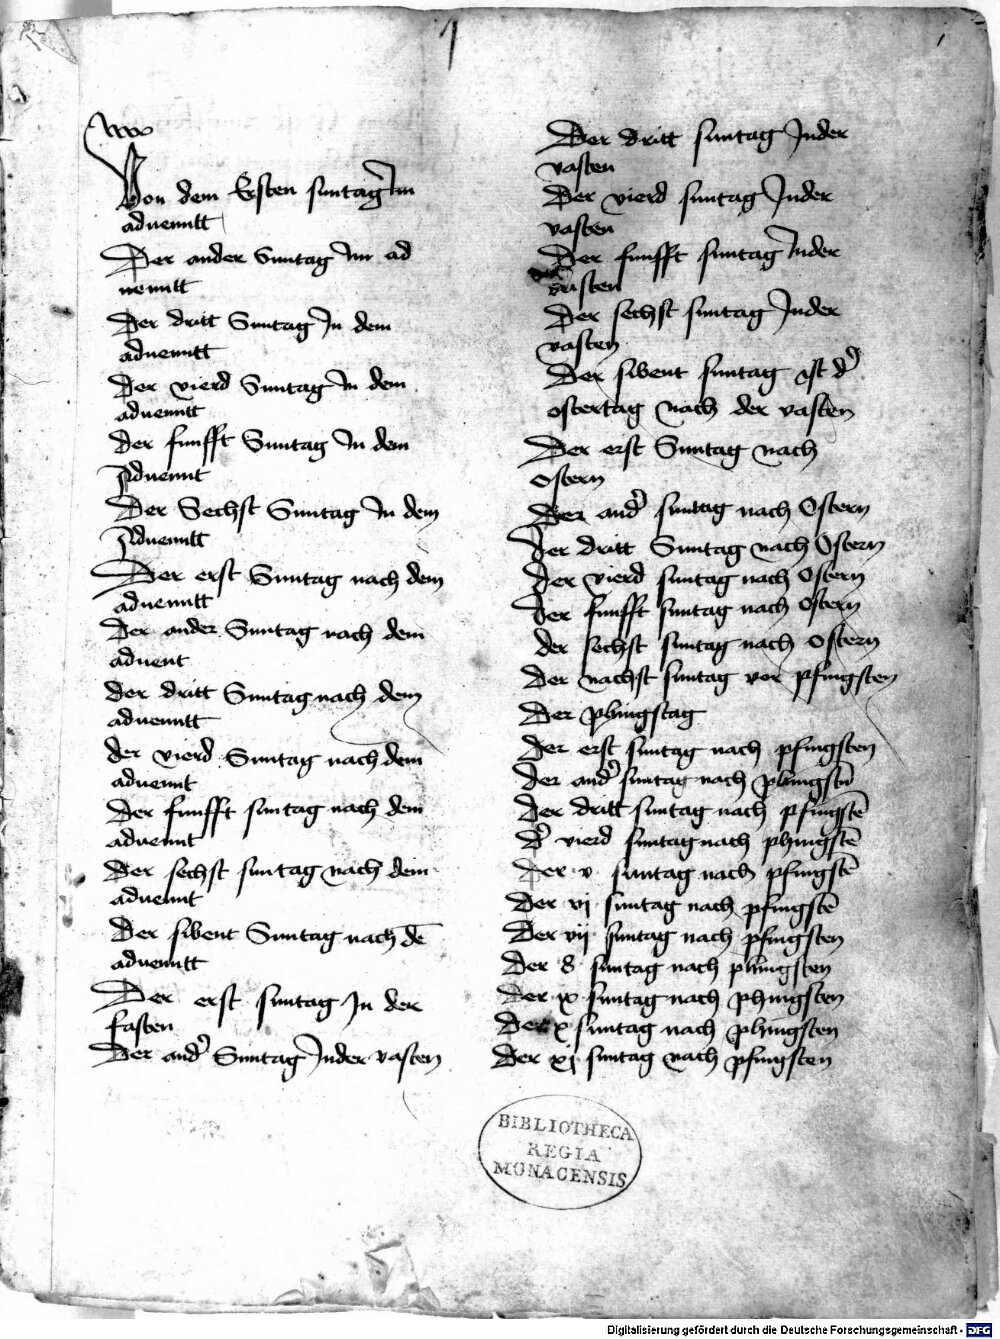 1
Von dem Ersten suntag Im
aduenntt
Der ander Suntag Im ad
uenntt
Der dritt Suntag In dem
aduenntt
Der vierd Suntag In dem
aduenntt
Der funfft Suntag In dem
Aduennt
Der Sechst Suntag In dem
Aduenntt
Der erst Suntag nach dem
aduenntt
Der ander Suntag nach dem
aduent
Der dritt Suntag nach dem
aduenntt
der vierd Suntag nach dem
aduennt
Der funfft suntag nach dem
aduennt
Der sechst suntag nach dem
aduennt
Der sibent Suntag nach dē
aduenntt
Der erst suntag In der
fasten
Der and' Suntag Inder vasten
Der dritt suntag Inder
vasten
Der vierd suntag Inder
vasten
Der funfft suntag Inder
Der sechst suntag Inder
vasten
Der sibent suntag ist d'
ostertag nach der vasten
Der erst Suntag nach
Ostern
Der and' suntag nach Ostern
Der dritt Suntag nach Ostern
Der vierd suntag nach Ostern
Der funfft suntag nach Ostern
der sechst suntag nach Ostern
Der nachst suntag vor pfingsten
Der phingstag
Der erst suntag nach pfingsten
Der and' suntag nach phingstn̄
Der dritt suntag nach pfingstē
D' vierd suntag nach phingstē
Der v suntag nach pfingstē
Der vj suntag nach pfingstē
Der vij suntag nach pfingsten
Der 8 suntag nach phingsten
Der ix suntag nach phingsten
Der x suntag nach phingsten
Der xj suntag nach pfingsten
BIBLIOTHECA
REGIA
MONACENSIS
Digitalisierung gefördert durch die Deutsche Forschungsgemeinschaft - DFG